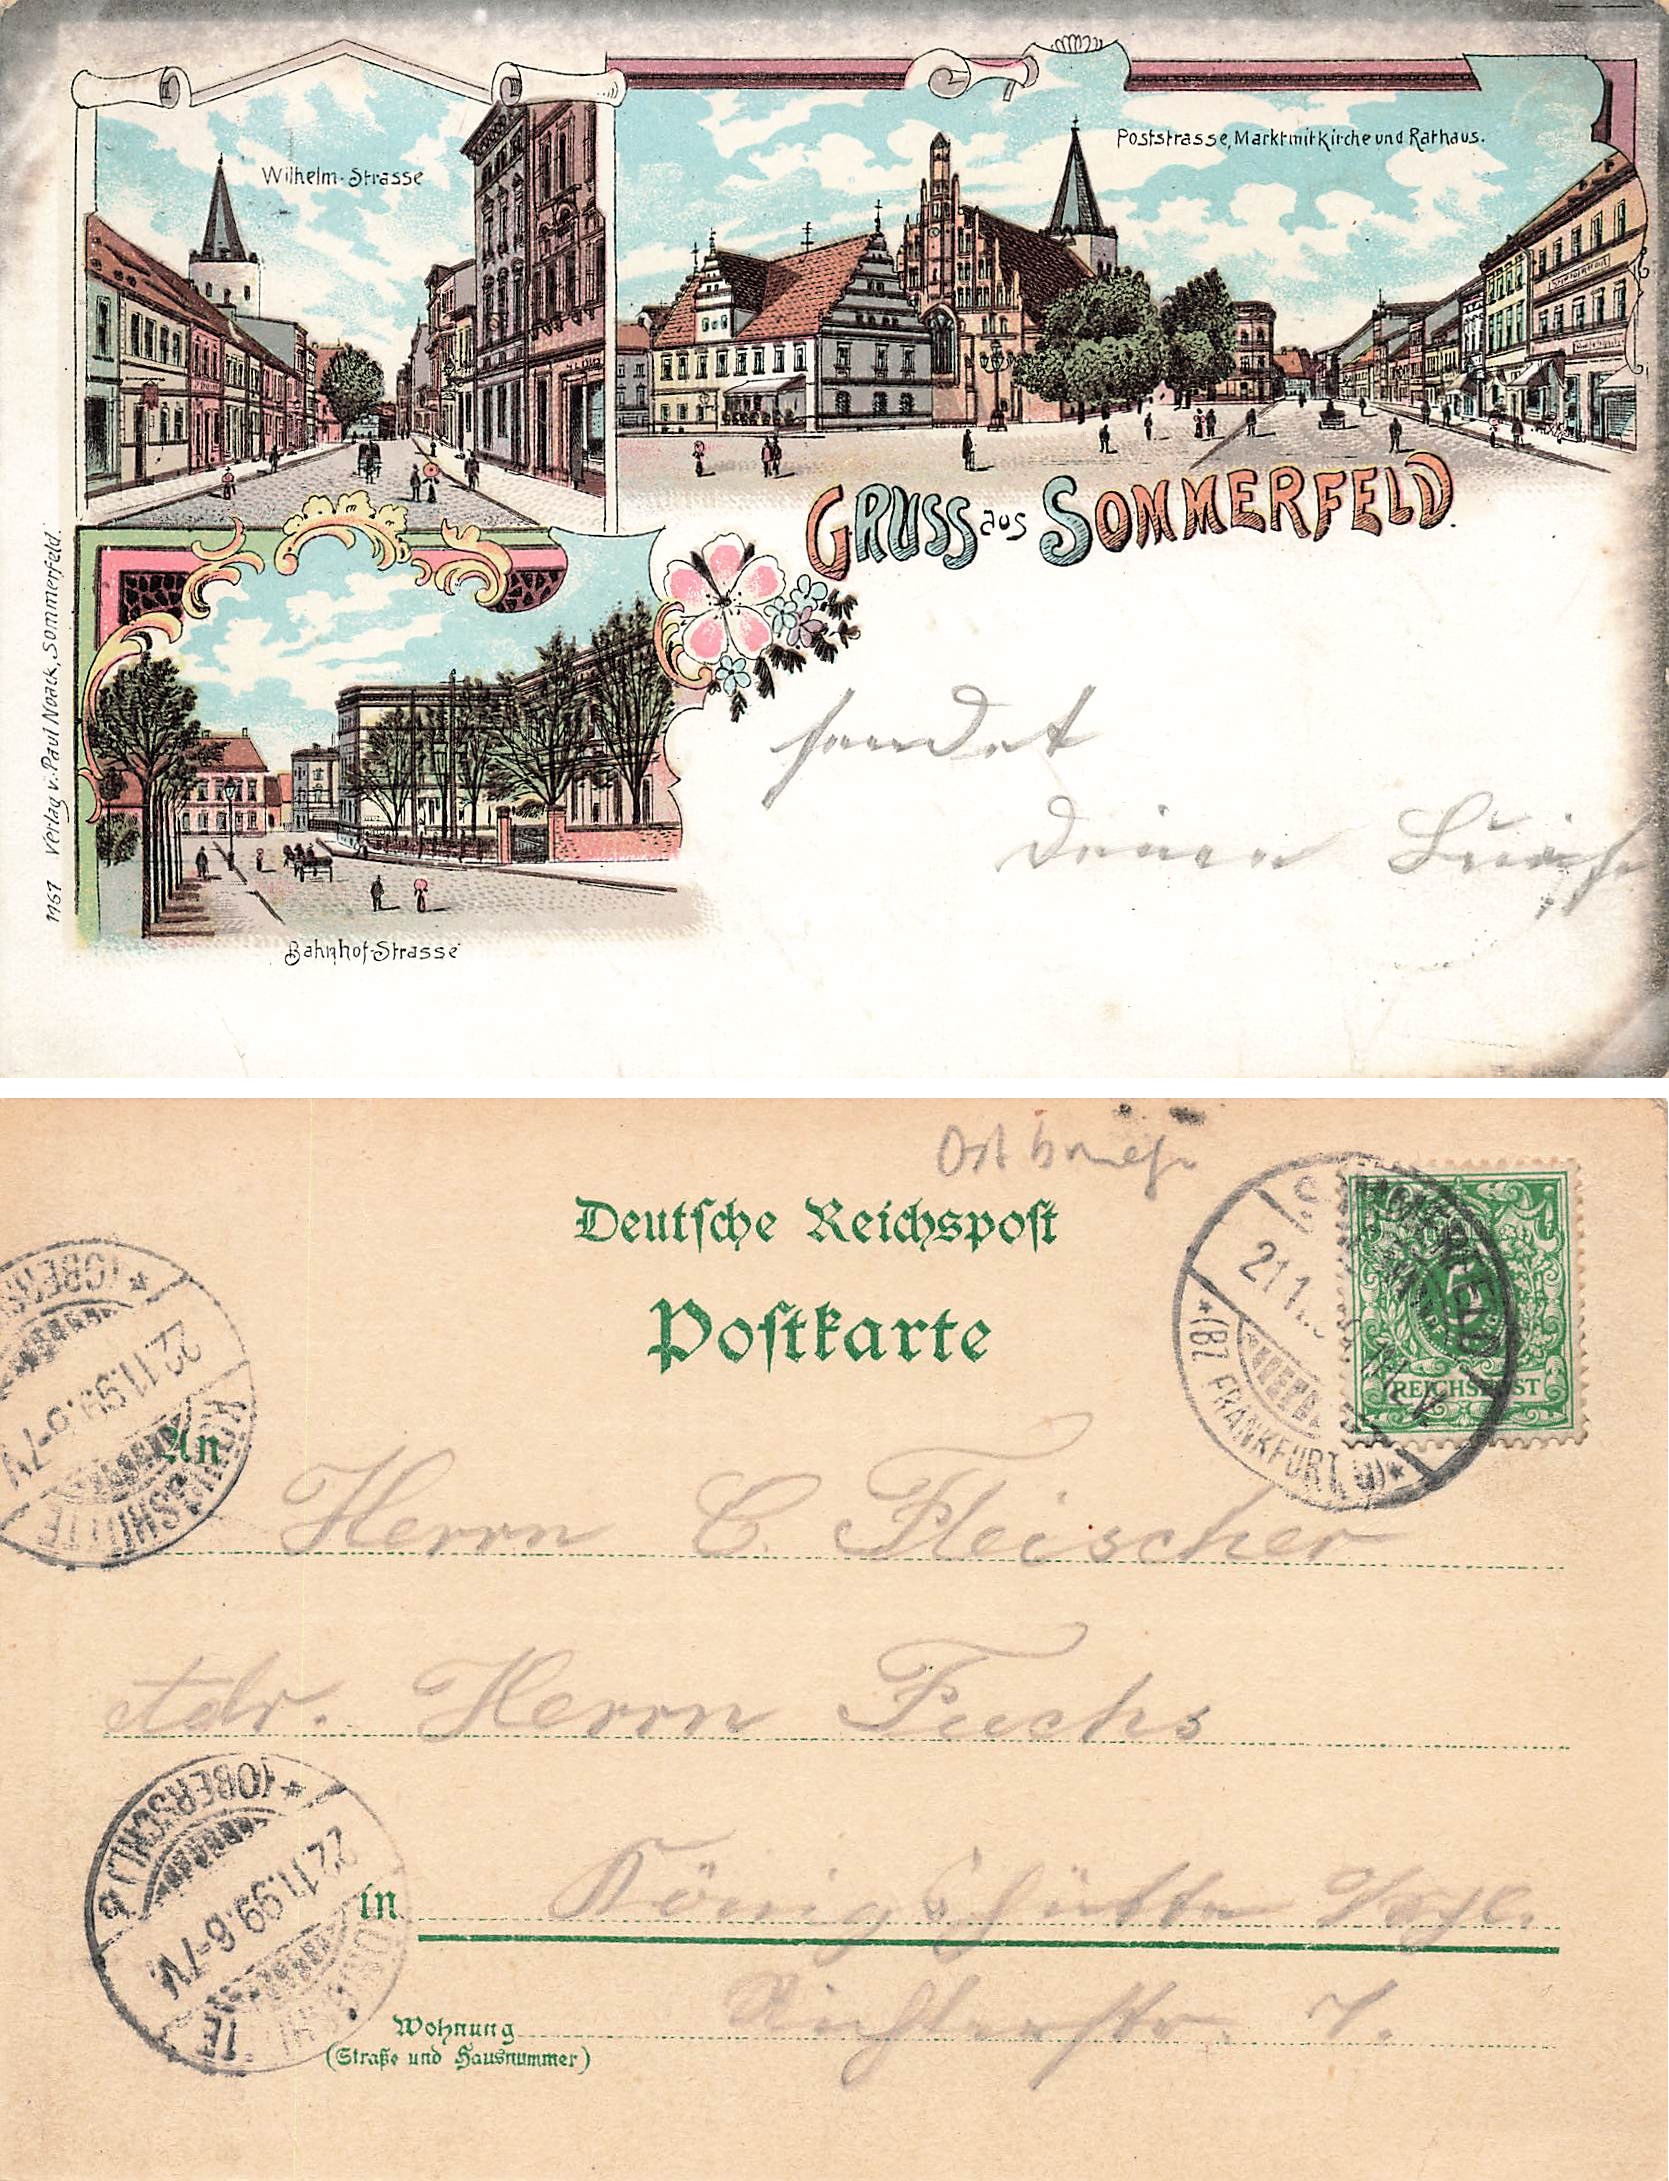 Wilhelm-Strasse
Poststrasse, Markt mit Kirche und Rathaus.
GRUSS aus SOMMERFELD.
sendet
Bahnhof-Strasse
1167 Verlag v. Paul Noack, Sommerfeld.
Deutsche Reichspost
Postkarte
SOMMERFELD
21.11.
*(BZ. FRANKFURT, O)*
5
REICHSPOST
KÖNIGSHÜTTE
22.11.99.6-7V.
*(OBERSCHL)
An
Herrn C. Fleischer
Adr. Herrn Fuchs
KÖNIGSHÜTTE
22.11.99.6-7V.
*(OBERSCHL)
in Königshütte O/Schl.
Wohnung Richterstr. 7.
(Straße und Hausnummer)